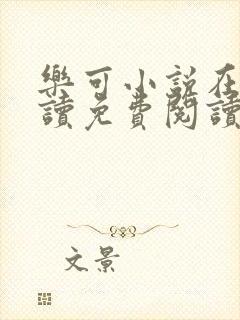 樂可小說在
讀免費閱讀
文景